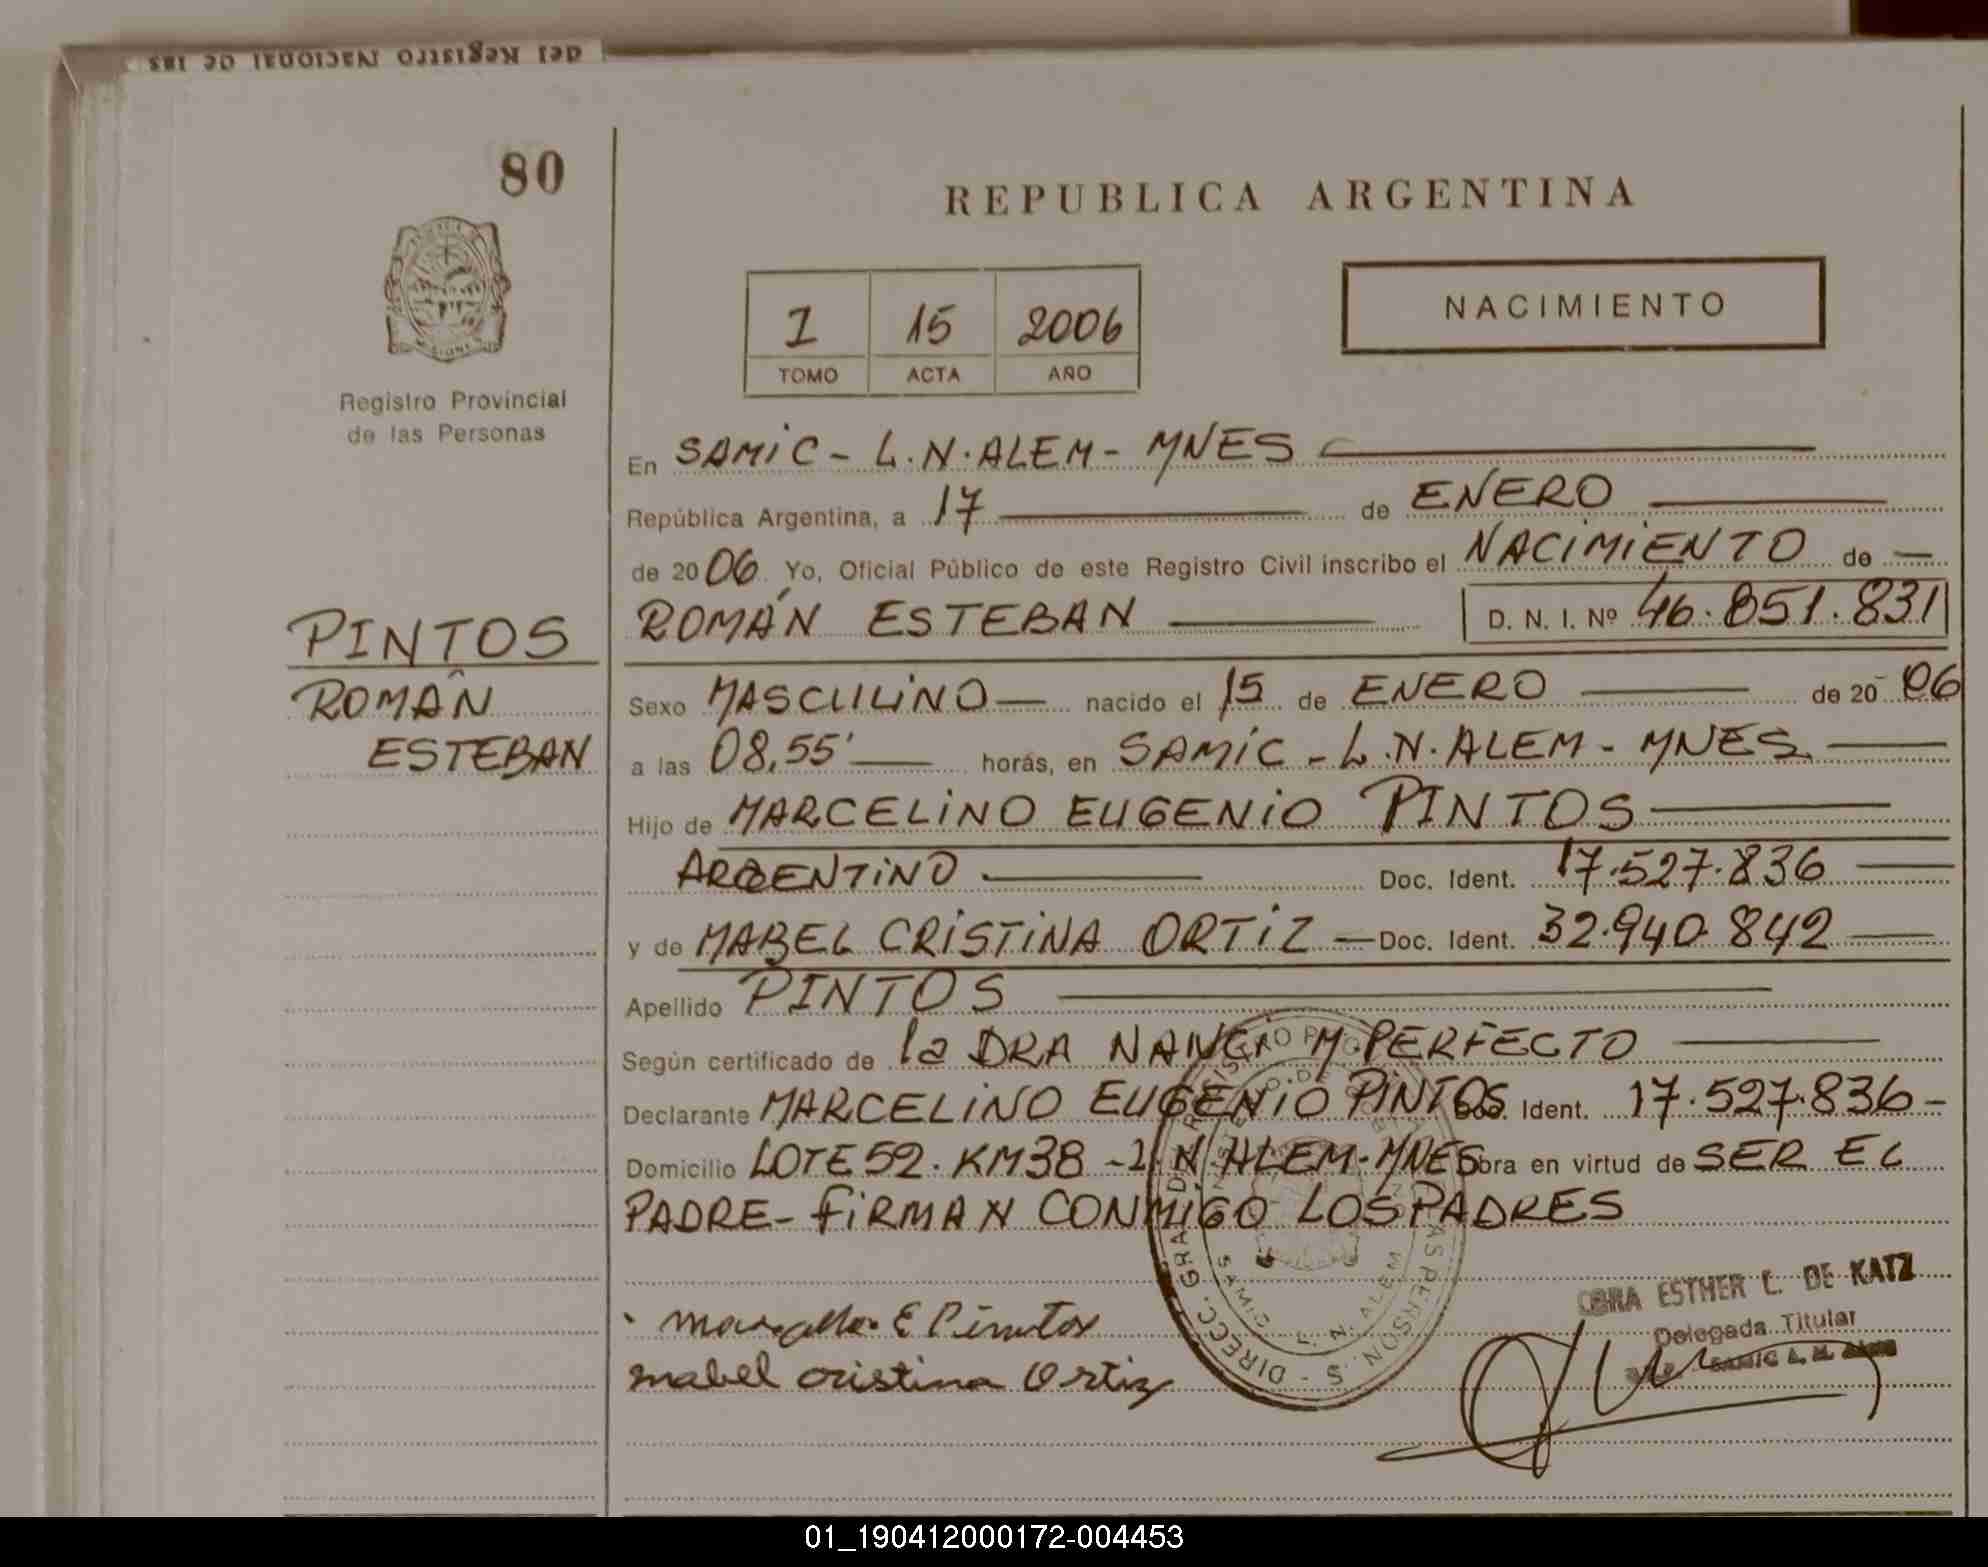 del Registro Nacional de las
80
REPUBLICA ARGENTINA
NACIMIENTO
1 15 2006
TOMO ACTA AÑO
MISIONES
Registro Provincial
de las Personas
En SAMIC - L.N.ALEM - MNES
República Argentina, a 17 de ENERO
de 2006. Yo, Oficial Público de este Registro Civil inscribo el NACIMIENTO de
ROMÁN ESTEBAN D. N. I. Nº 46.851.831
PINTOS
ROMÁN
ESTEBAN
Sexo MASCULINO nacido el 15 de ENERO de 2006
a las 08,55' horás, en SAMIC - L.N.ALEM - MNES.
Hijo de MARCELINO EUGENIO PINTOS
ARGENTINO Doc. Ident. 17.527.836
y de MABEL CRISTINA ORTIZ Doc. Ident. 32.940.842
Apellido PINTOS
Según certificado de la DRA NANCI M PERFECTO
Declarante MARCELINO EUGENIO PINTOS Doc. Ident. 17.527.836 -
Domicilio LOTE 52. KM38 - L.N ALEM - MNES Obra en virtud de SER EL
PADRE - FIRMAN CONMIGO LOS PADRES
E Pintos
Mabel Cristina Ortiz
ESTHER L. DE KATZ
Delegada Titular
SAMIC L. N.
DIRECC. GRAL
SAMIC L. N. ALEM
01_190412000172-004453